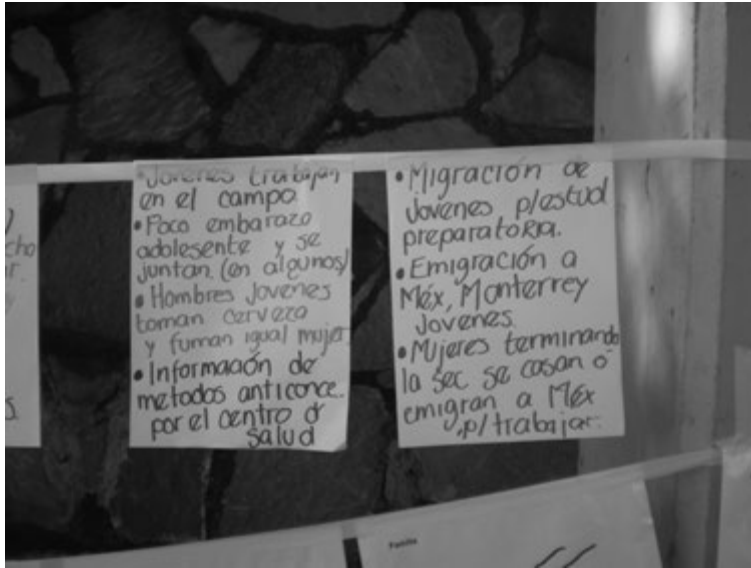 cho
• Jovenes trabajan
en el campo
• Poco embarazo
adolesente y se
juntan. (en algunos)
• Hombres Jovenes
toman cerveza
y fuman igual mujer.
• Información de
metodos anticonce.
por el centro d
salud
• Migración de
Jovenes p/estud
preparatoria.
• Emigración a
Méx, Monterrey
Jovenes.
• Mujeres terminando
la sec se casan ó
emigran a Méx
p/trabajar.
Familia